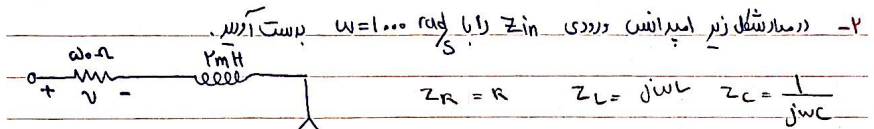 ۲- در مدار شکل زیر امپدانس ورودی Zin را با ω=1000 rad/s بدست آورید.
۵۰۰Ω ۲mH
+ v - ZR = R ZL = jωL ZC = 1/jωC